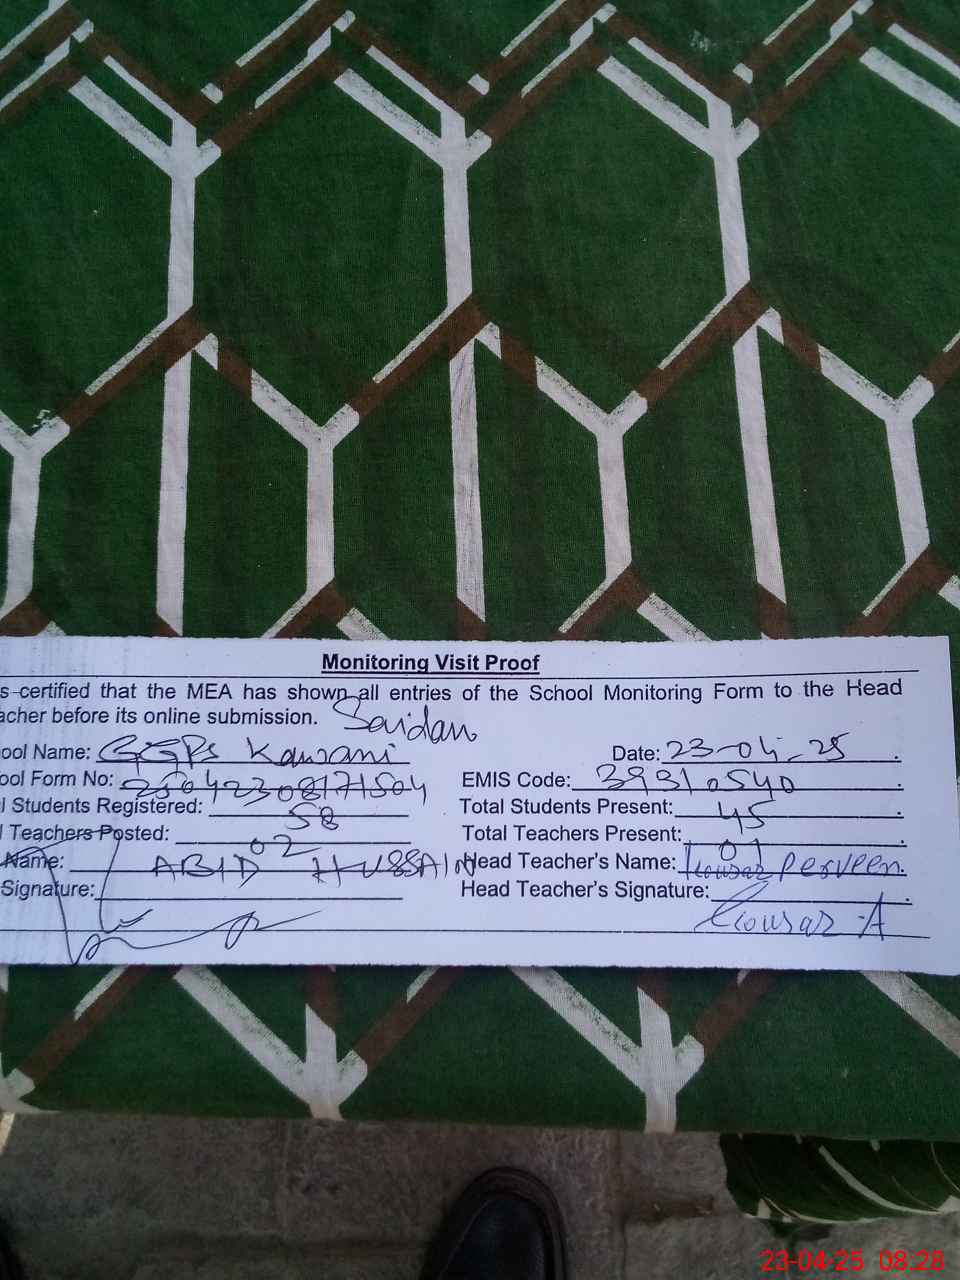 Monitoring Visit Proof
s certified that the MEA has shown all entries of the School Monitoring Form to the Head
acher before its online submission. Saidan
ool Name: GGPS Kawani Date: 23-04-25
ool Form No: EMIS Code: 39310540
l Students Registered: 58 Total Students Present: 45
l Teachers Posted: 02 Total Teachers Present: 01
Name: ABID HUSSAIN Head Teacher's Name: Kousar Perveen
Signature: Head Teacher's Signature:
Kousar A
23-04-25 08:28